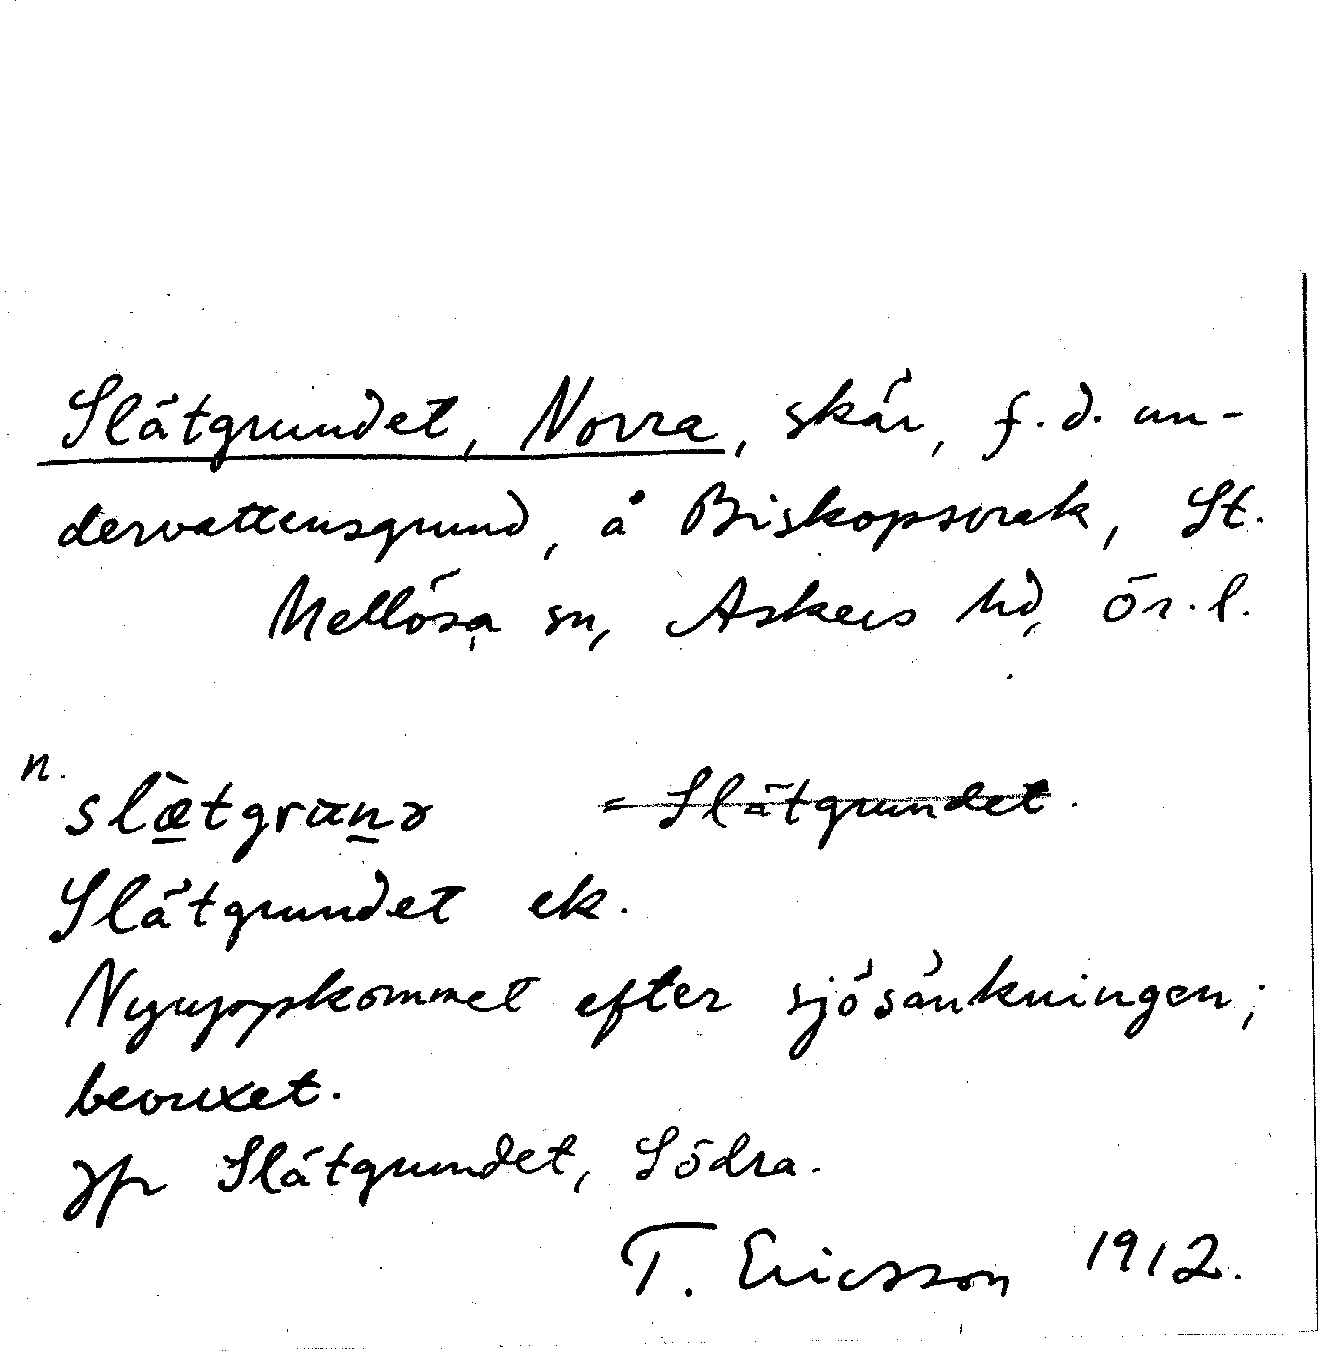 Slätgrundet, Norra, skär, f.d. un-
dervattensgrund, å Biskopsvrak, St.
Mellösa sn, Askers hd, Ör.l.
n.
slæ̀tgrunə = Slätgrundet.
Slätgrundet ek.
Nyuppkommet efter sjösänkningen;
bevuxet.
Jfr Slätgrundet, Södra.
T. Ericsson 1912.